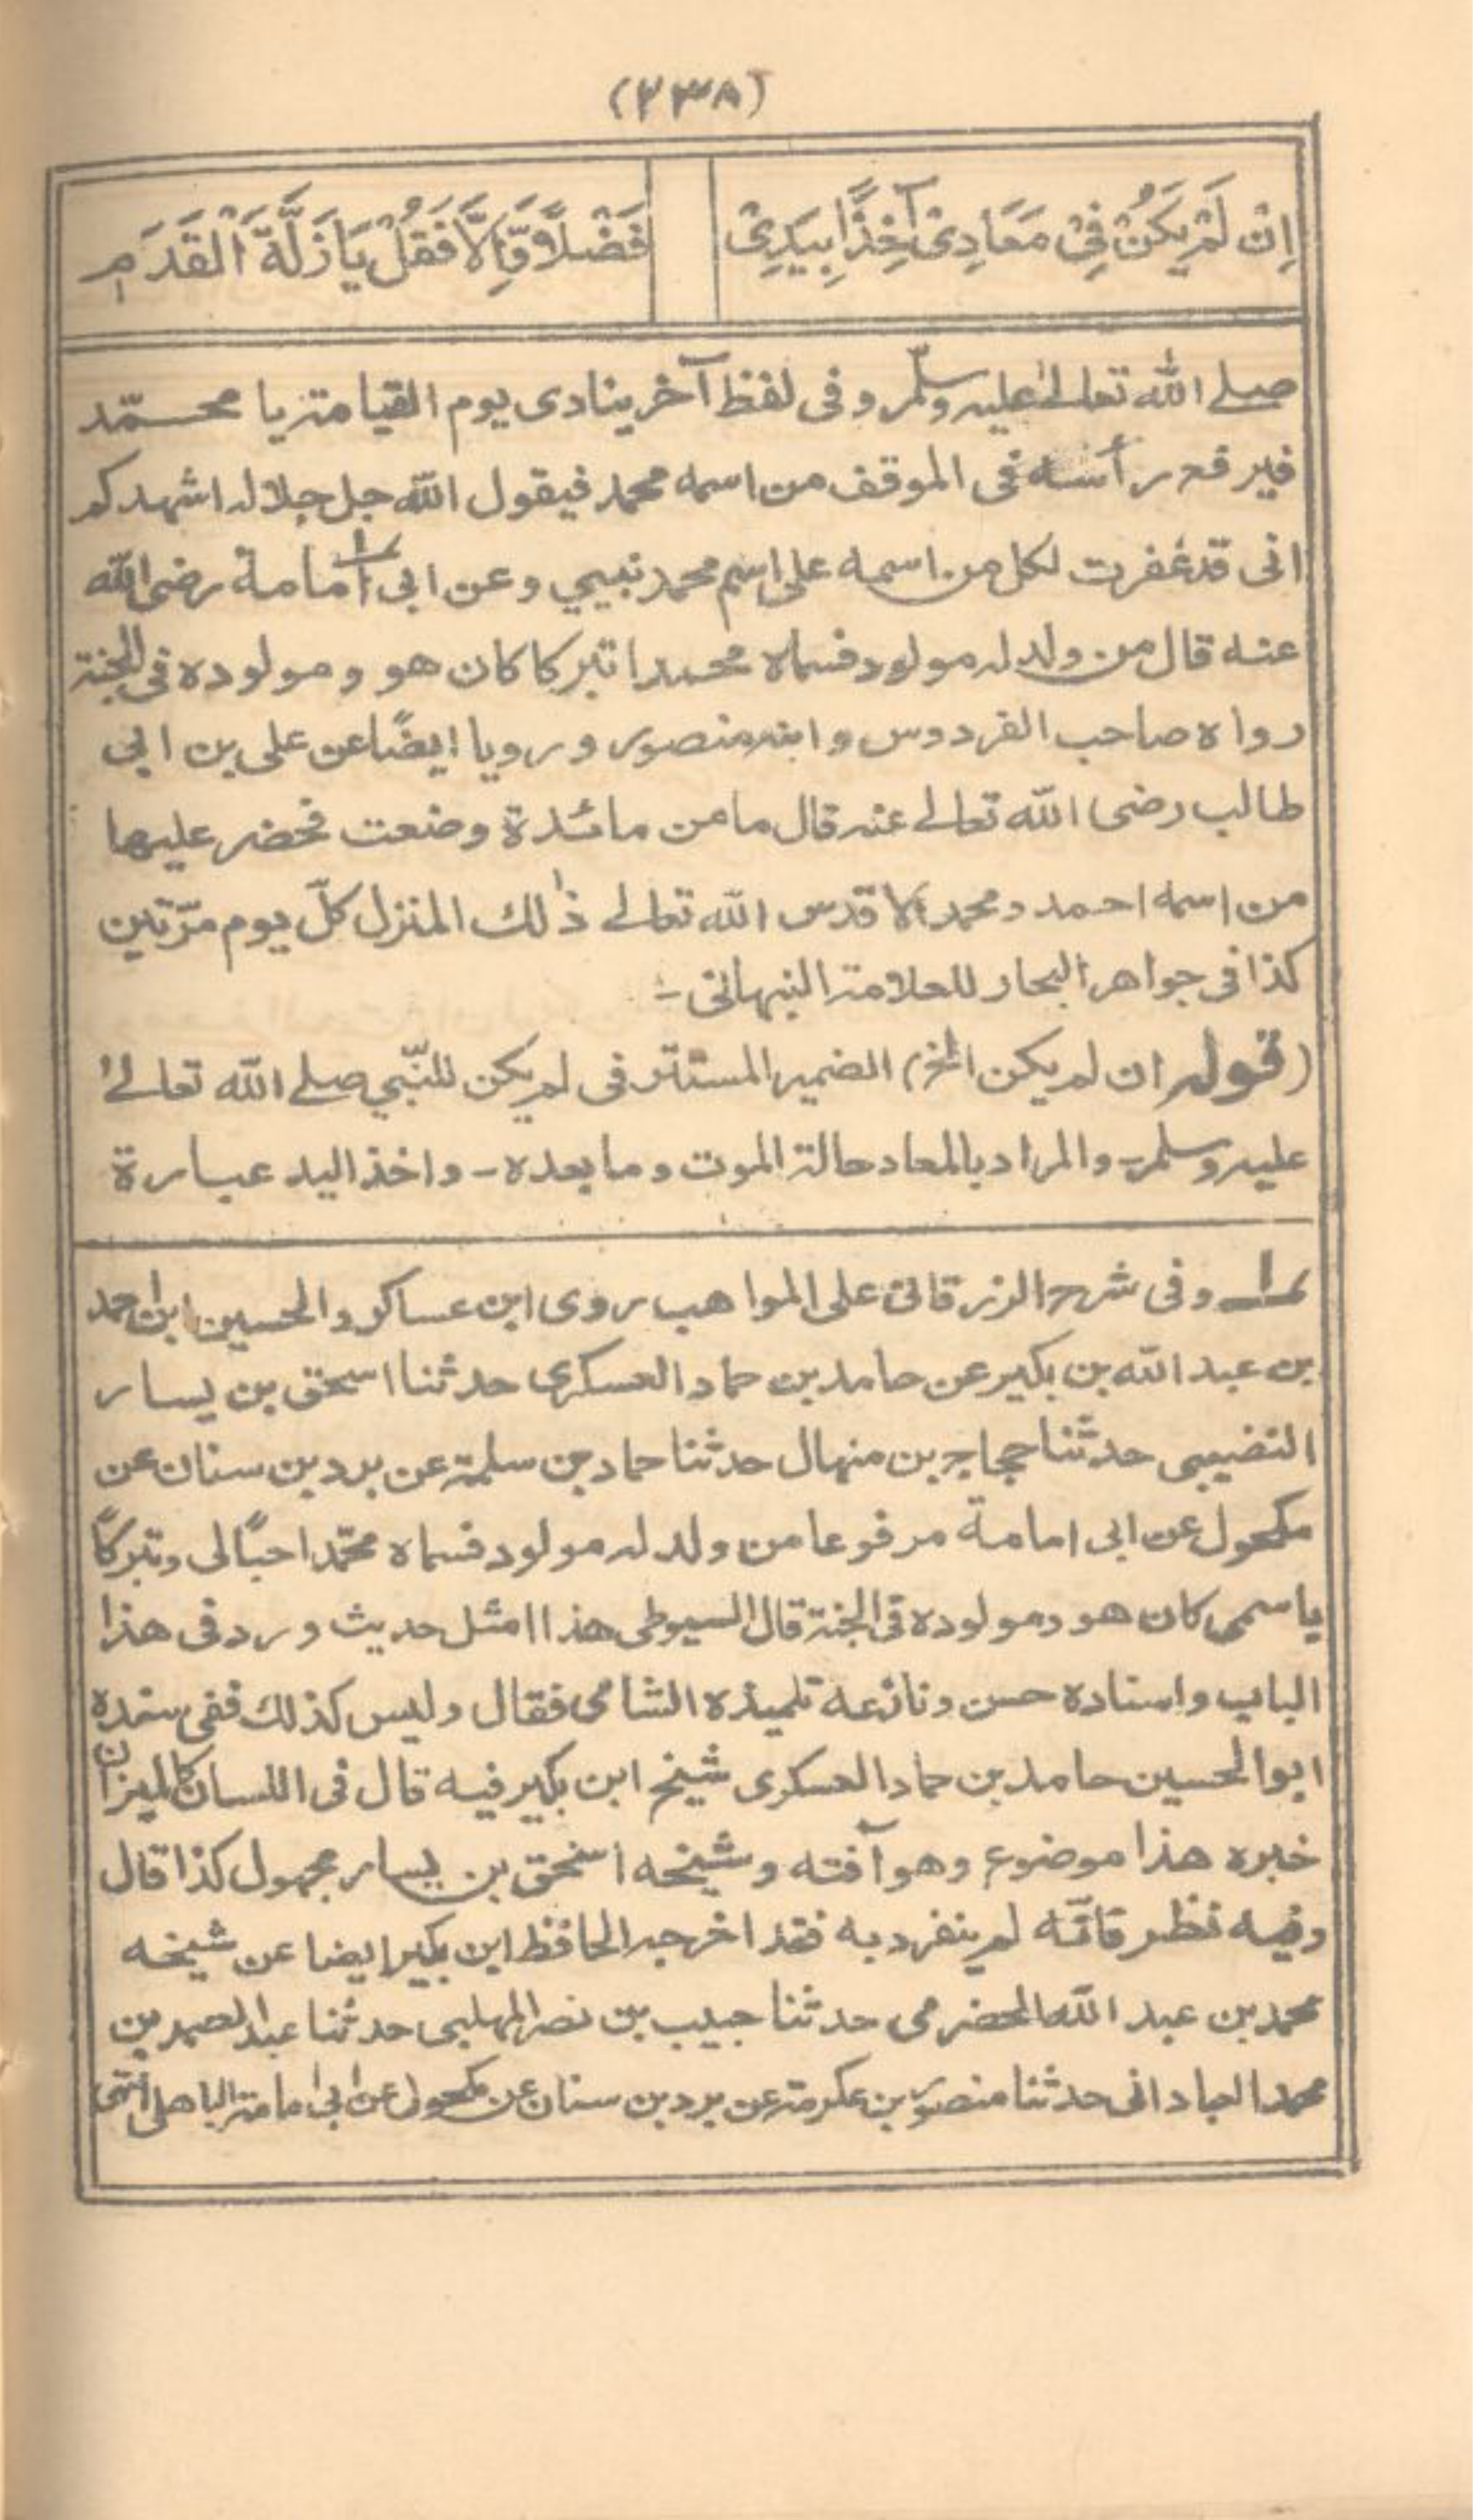 (٢٣٨)
اِنْ لَمْ يَكُنْ فِيْ مَعَادِيْ آخِذًا بِيَدِيْ فَضْلًا وَّاِلَّا فَقُلْ يَا زَلَّةَ الْقَدَمِ
صلے اللّٰه تعالےٰ عليه وسلّم وفى لفظ آخر ينادى يوم القيامة يا محمّد
فيرفع رأسه فى الموقف من اسمه محمد فيقول اللّٰه جل جلاله اشهدكم
انى قد غفرت لكل من اسمه على اسم محمد نبيي وعن ابى امامة ١ رضى اللّٰه
عنه قال من ولد له مولود فسماه محمدا تبركا كان هو ومولوده فى الجنة
رواه صاحب الفردوس وابنه منصور ورويا ايضًا عن على بن ابى
طالب رضى اللّٰه تعالے عنه قال ما من مائدة وضعت فحضر عليها
من اسمه احمد ومحمد الا قدس اللّٰه تعالے ذٰلك المنزل كلّ يوم مرّتين
كذا فى جواهر البحار للعلامة النبهانى -
(قوله ان لم يكن الخ) الضمير المستتر فى لم يكن للنّبي صلے اللّٰه تعالےٰ
عليه وسلم - والمراد بالمعاد حالة الموت وما بعده - واخذ اليد عبارة
١ وفى شرح الزرقانى على المواهب روى ابن عساكر والحسين ابن احمد
بن عبد اللّٰه بن بكير عن حامد بن حماد العسكرى حدثنا اسحٰق بن يسار
النضيبى حدثنا حجاج بن منهال حدثنا حماد بن سلمة عن برد بن سنان عن
مكحول عن ابى امامة مرفوعا من ولد له مولود فسماه محمّدا حبًا لى وتبركًا
باسمى كان هو ومولوده فى الجنة قال السيوطى هذا امثل حديث ورد فى هذا
الباب واسناده حسن ونازعه تلميذه الشامى فقال وليس كذلك ففى سنده
ابو الحسين حامد بن حماد العسكرى شيخ ابن بكير فيه قال فى اللسان كالميزان
خبره هذا موضوع وهو آفته وشيخه اسحٰق بن يسار مجهول كذا قال
وفيه نظر فانّه لم ينفرد به فقد اخرجه الحافظ ابن بكير ايضا عن شيخه
محمد بن عبد اللّٰه الحضرمى حدثنا حبيب بن نصر المهلبى حدثنا عبد الصمد بن
محمد العبادانى حدثنا منصور بن عكرمة عن برد بن سنان عن مكحول عن ابى امامة الباهلى انتهى